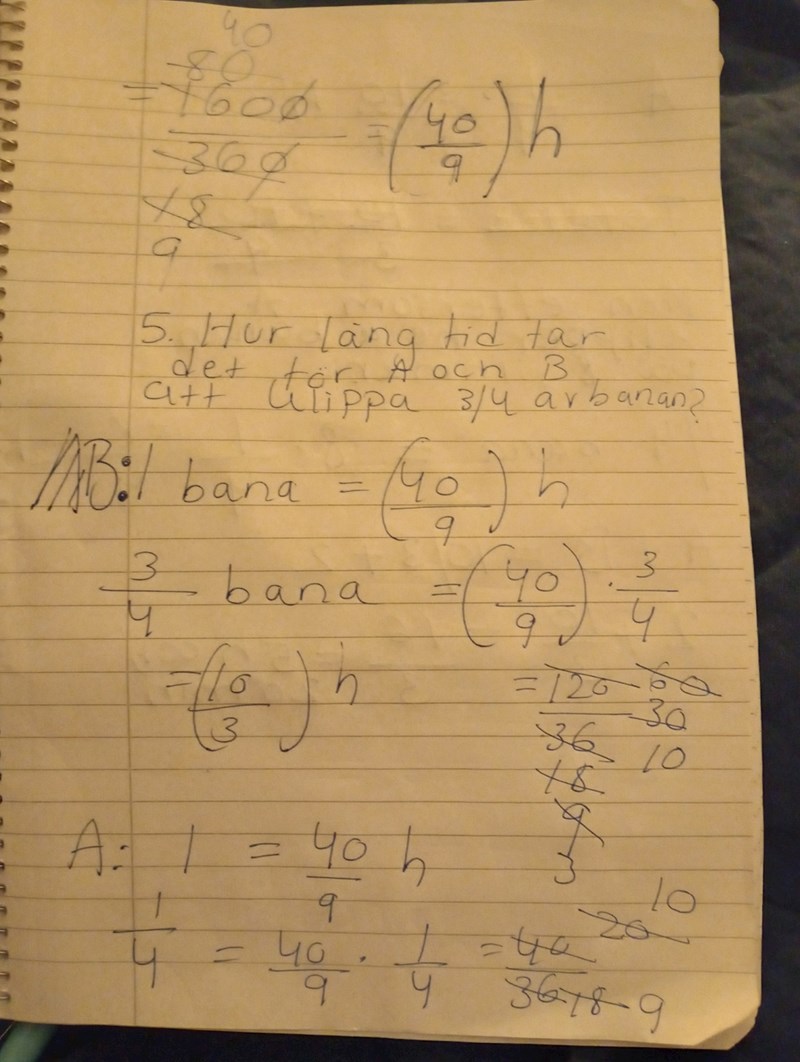 40
80
= 1600 / 360 = (40/9) h
18
9
5. Hur lång tid tar
det för A och B
att klippa 3/4 av banan?
AB: 1 bana = (40/9) h
3/4 bana = (40/9) · 3/4
= (10/3) h = 120/36 60
30
18 10
9
3
A: 1 = 40/9 h
10
20
1/4 = 40/9 · 1/4 = 40/36 18 9